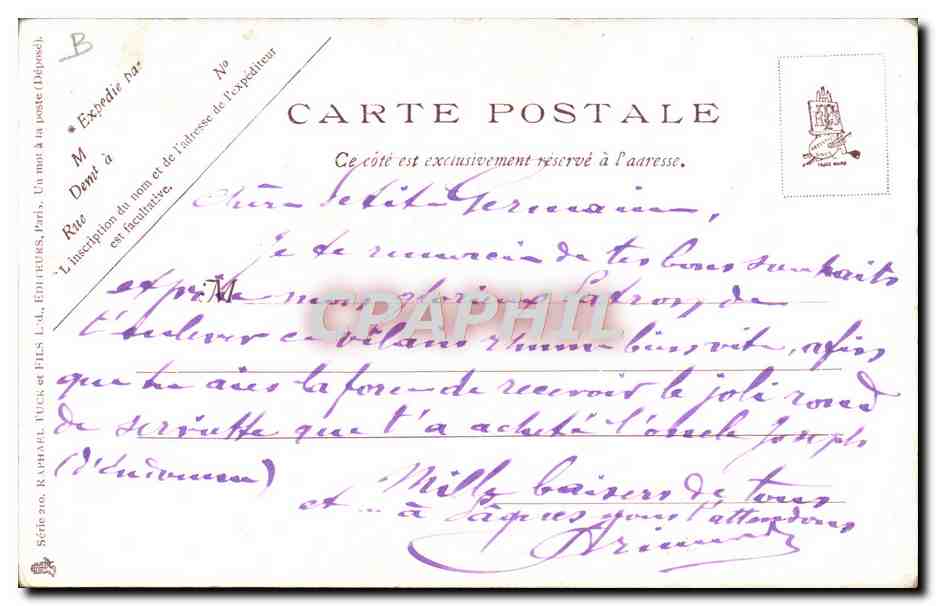 B
* Expédié par
M
Demt à
Rue
N°
*L'inscription du nom et de l'adresse de l'expéditeur
est facultative.
CARTE POSTALE
Ce côté est exclusivement réservé à l'adresse.
TRADE MARK
Petit Germain,
Je te remercie de tes bons souhaits
et prie mon glorieux Patron, de
t'enlever ce vilain rhume bien vite, afin
que tu aies la force de recevoir le joli rond
de serviette que t'a acheté l'oncle Joseph
Mille baisers de tous
et ... à Pâques nous t'attendons
M
CPAPHIL
Série 210. RAPHAEL TUCK et FILS Ltd., EDITEURS, Paris. Un mot à la poste (Déposé).